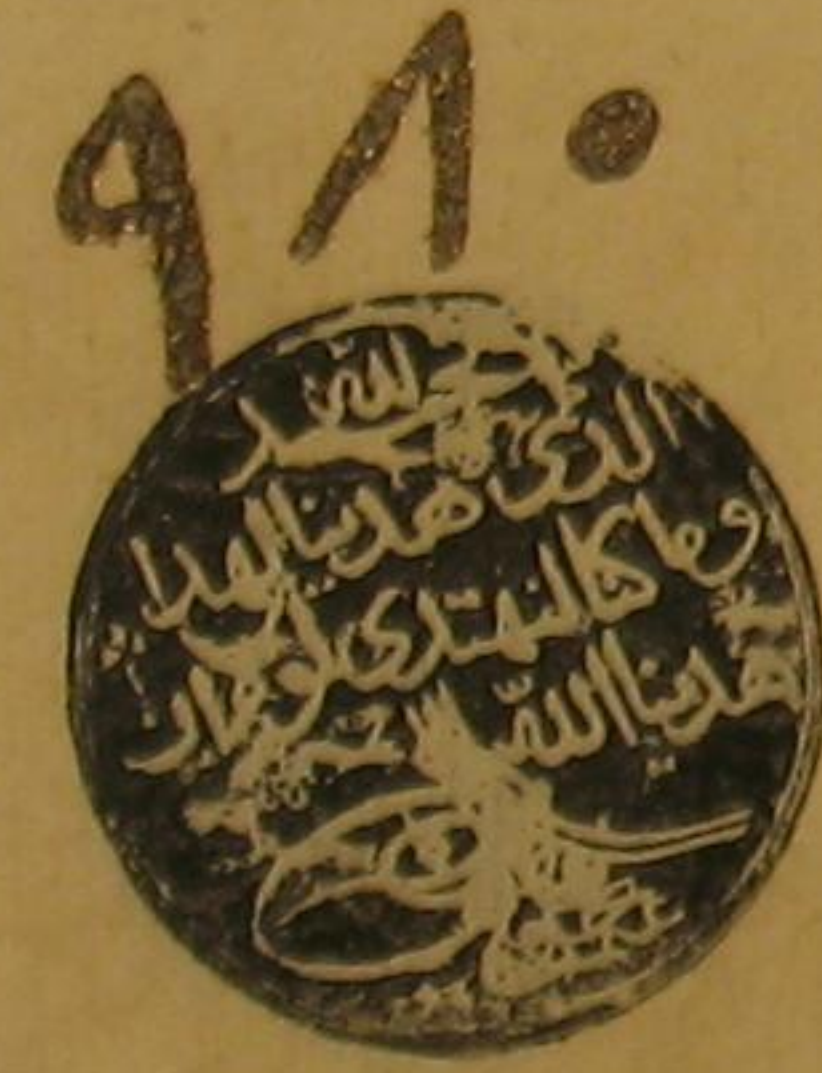 ٩٨٠
الحمد لله
الذي هدينا لهذا
وما كنا لنهتدي لولا ان
هدينا الله